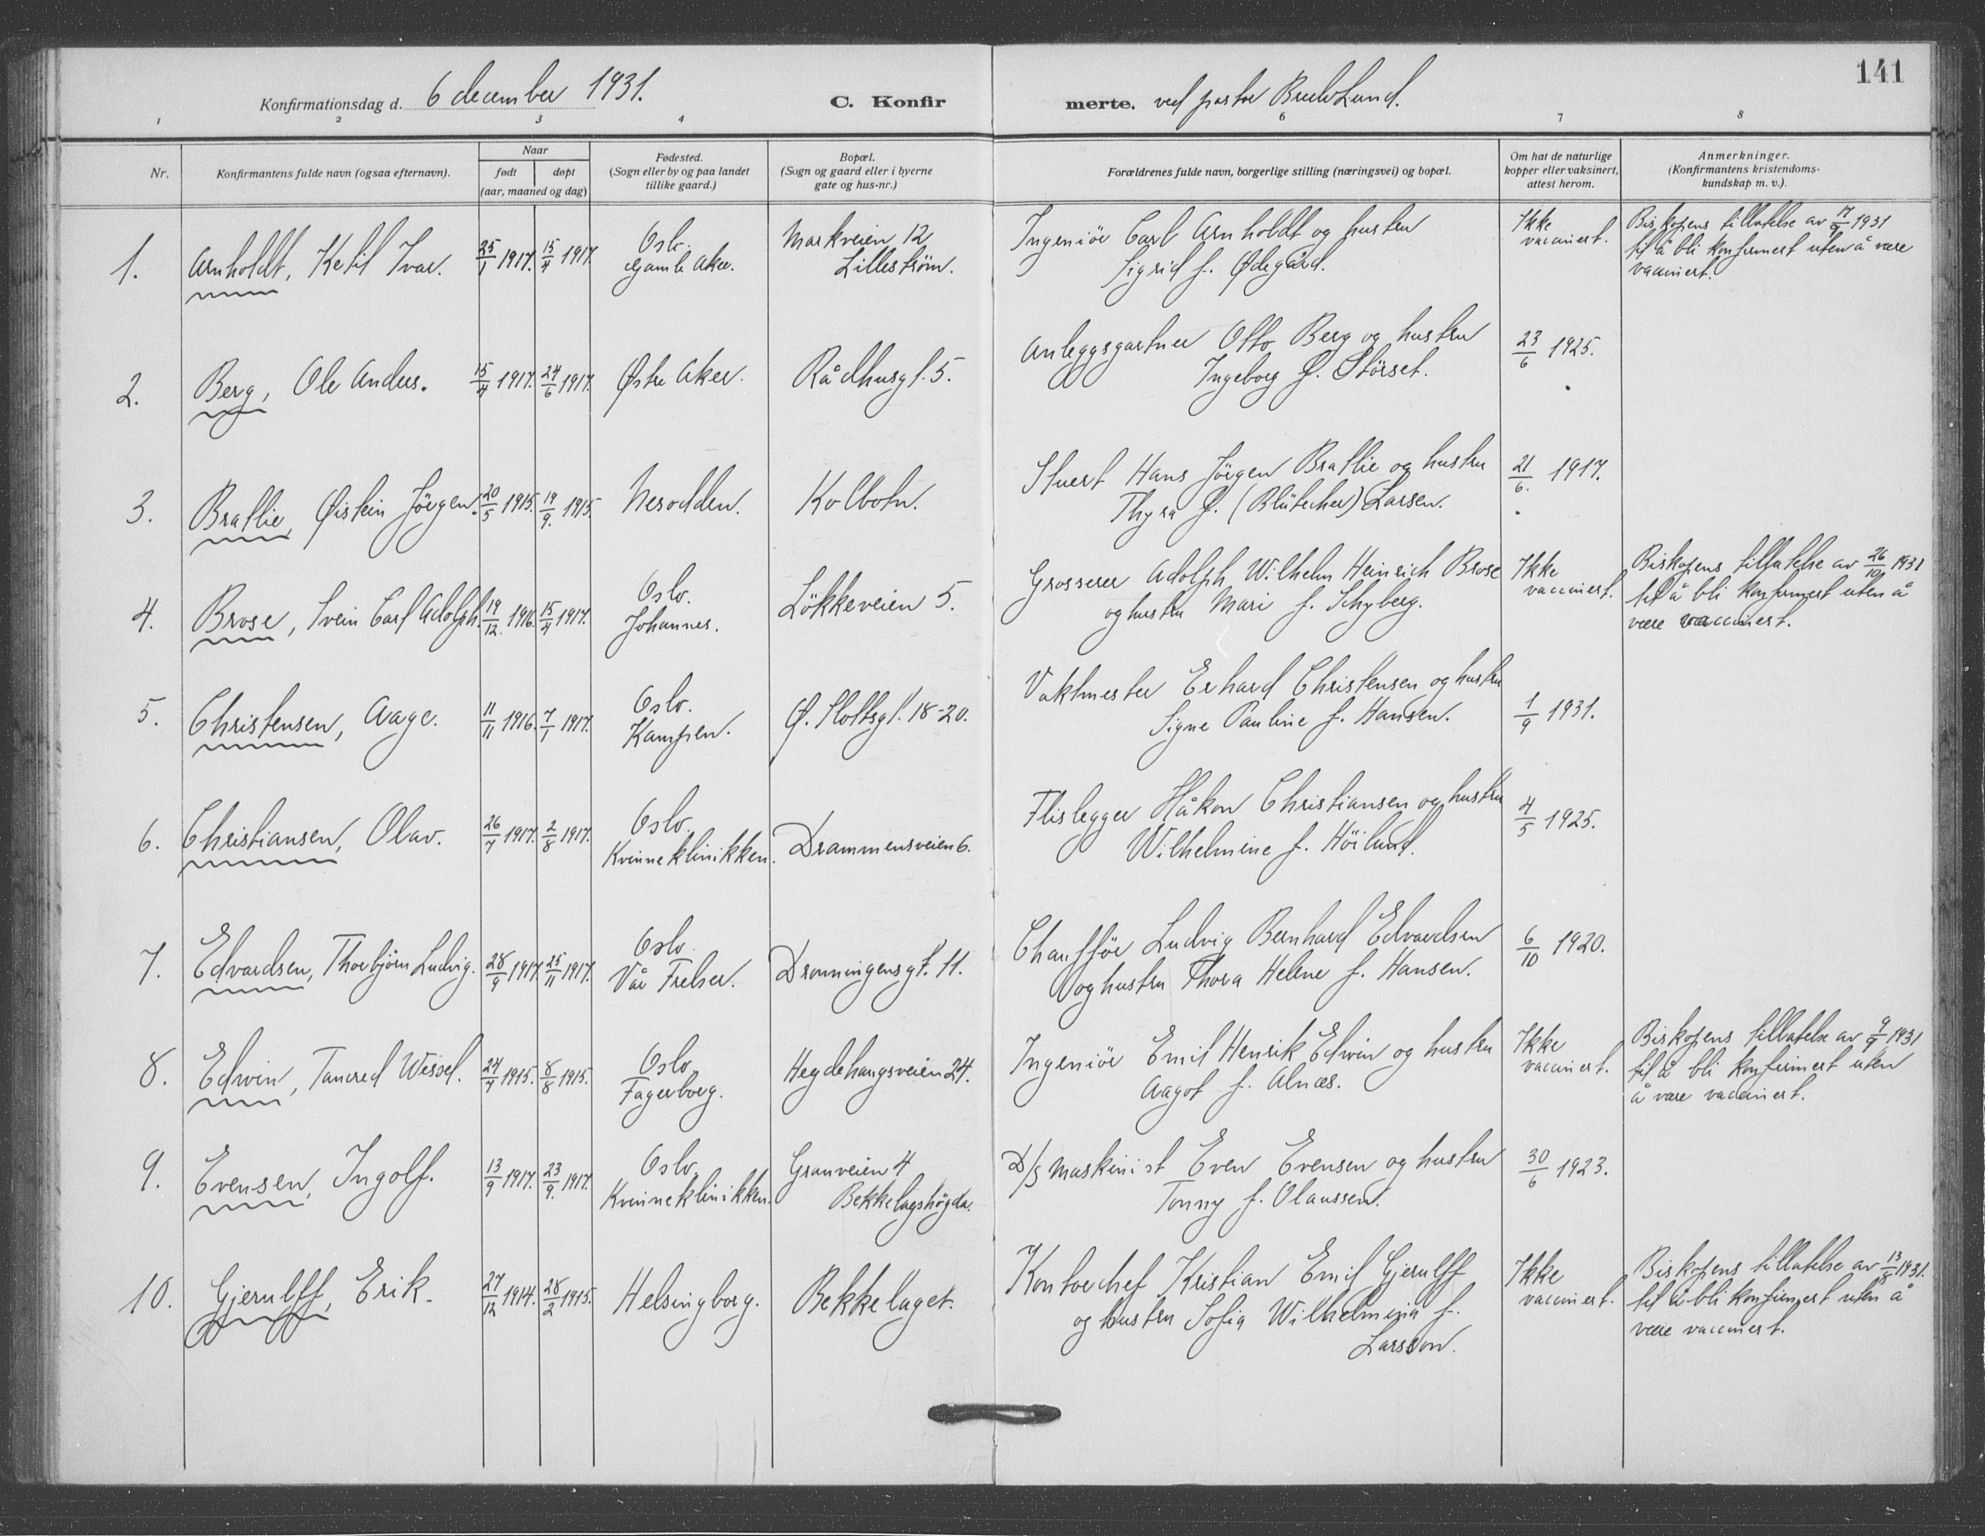 141
Konfirmationsdag d. 6 december 1931. C. Konfirmerte. ved pastor Lund.
1 2 3 4 6 7 8
Nr. Konfirmantens fulde navn (ogsaa efternavn). Naar født døpt (aar, maaned og dag) Fødested. (Sogn eller by og paa landet tillike gaard.) Bopæl. (Sogn og gaard eller i byerne gate og hus-nr.) Forældrenes fulde navn, borgerlige stilling (næringsvei) og bopæl. Om hat de naturlige kopper eller vaksinert, attest herom. Anmerkninger. (Konfirmantens kristendomskundskap m. v.).
1. Arnholdt, Ketil Ivar. 25/1 1917. 15/4 1917. Oslo. Gamle Aker. Markveien 12 Lillestrøm. Ingeniör Carl Arnholdt og hustru Sigrid f. Ødegård. Ikke vaccinert. Biskopens tillatelse av 1931 til å bli konfirmert uten å være vaccinert.
2. Berg, Ole Anders. 15/4 1917. 24/6 1917. Østre Aker. Rådhusgt. 5. Anleggsgartner Otto Berg og hustru Ingeborg f. Störset. 23/6 1925.
3. Bratlie, Øistein Jörgen. 20/5 1915. 19/9. 1915. Nesodden. Kolbotn. Stuert Hans Jörgen Bratlie og hustru Thyra f. (Blütecher) Larsen. 21/6. 1917.
4. Brose, Svein Carl Adolph. 19/12. 1916. 15/4 1917. Oslo. Johannes. Lökkeveien 5. Grosserer Adolph Wilhelm Heinrich Brose og hustru Mari f. Schyberg. Ikke vaccinert. Biskopens tillatelse av 26/10 1931 til å bli konfirmert uten å være vaccinert.
5. Christensen, Aage. 11/11 1916. 7/1 1917. Oslo. Kampen. Ø. Slottsgt. 18-20. Vaktmester Erhard Christensen og hustru Signe Pauline f. Hansen. 1/9 1931.
6. Christiansen, Olav. 26/7 1917. 2/8 1917. Oslo. Kvinneklinikken. Drammensveien 6. Flislegger Håkon Christiansen og hustru Wilhelmine f. Höilund. 4/5 1925.
7. Edvardsen, Thorbjörn Ludvig. 28/9 1917. 25/11 1917. Oslo. Vår Frelser. Dronningensgt. 11. Chaufför Ludvig Bernhard Edvardsen og hustru Thora Helene f. Hansen. 6/10 1920.
8. Edwin, Tancred Wessel. 24/7 1915. 8/8 1915. Oslo Fagerborg. Hegdehaugsveien 24. Ingeniör Emil Henrik Edwin og hustru Aagot f. Alnæs. Ikke vaccinert. Biskopens tillatelse av 9/9 1931 til å bli konfirmert uten å være vaccinert.
9. Evensen, Ingolf. 13/9 1917. 23/9. 1917. Oslo. Kvinneklinikken. Granveien 4 Bekkelagshögda. D/S maskinist Even Evensen og hustru Tonny f. Olaussen. 30/6 1923.
10. Gjerulff, Erik. 27/12 1914. 28/2 1915. Helsingborg. Bekkelaget. Kontorchef Kristian Emil Gjerulff og hustru Sofia Wilhelmina f. Larsson. Ikke vaccinert. Biskopens tillatelse av 13/8 1931. til å bli konfirmert uten å være vaccinert.